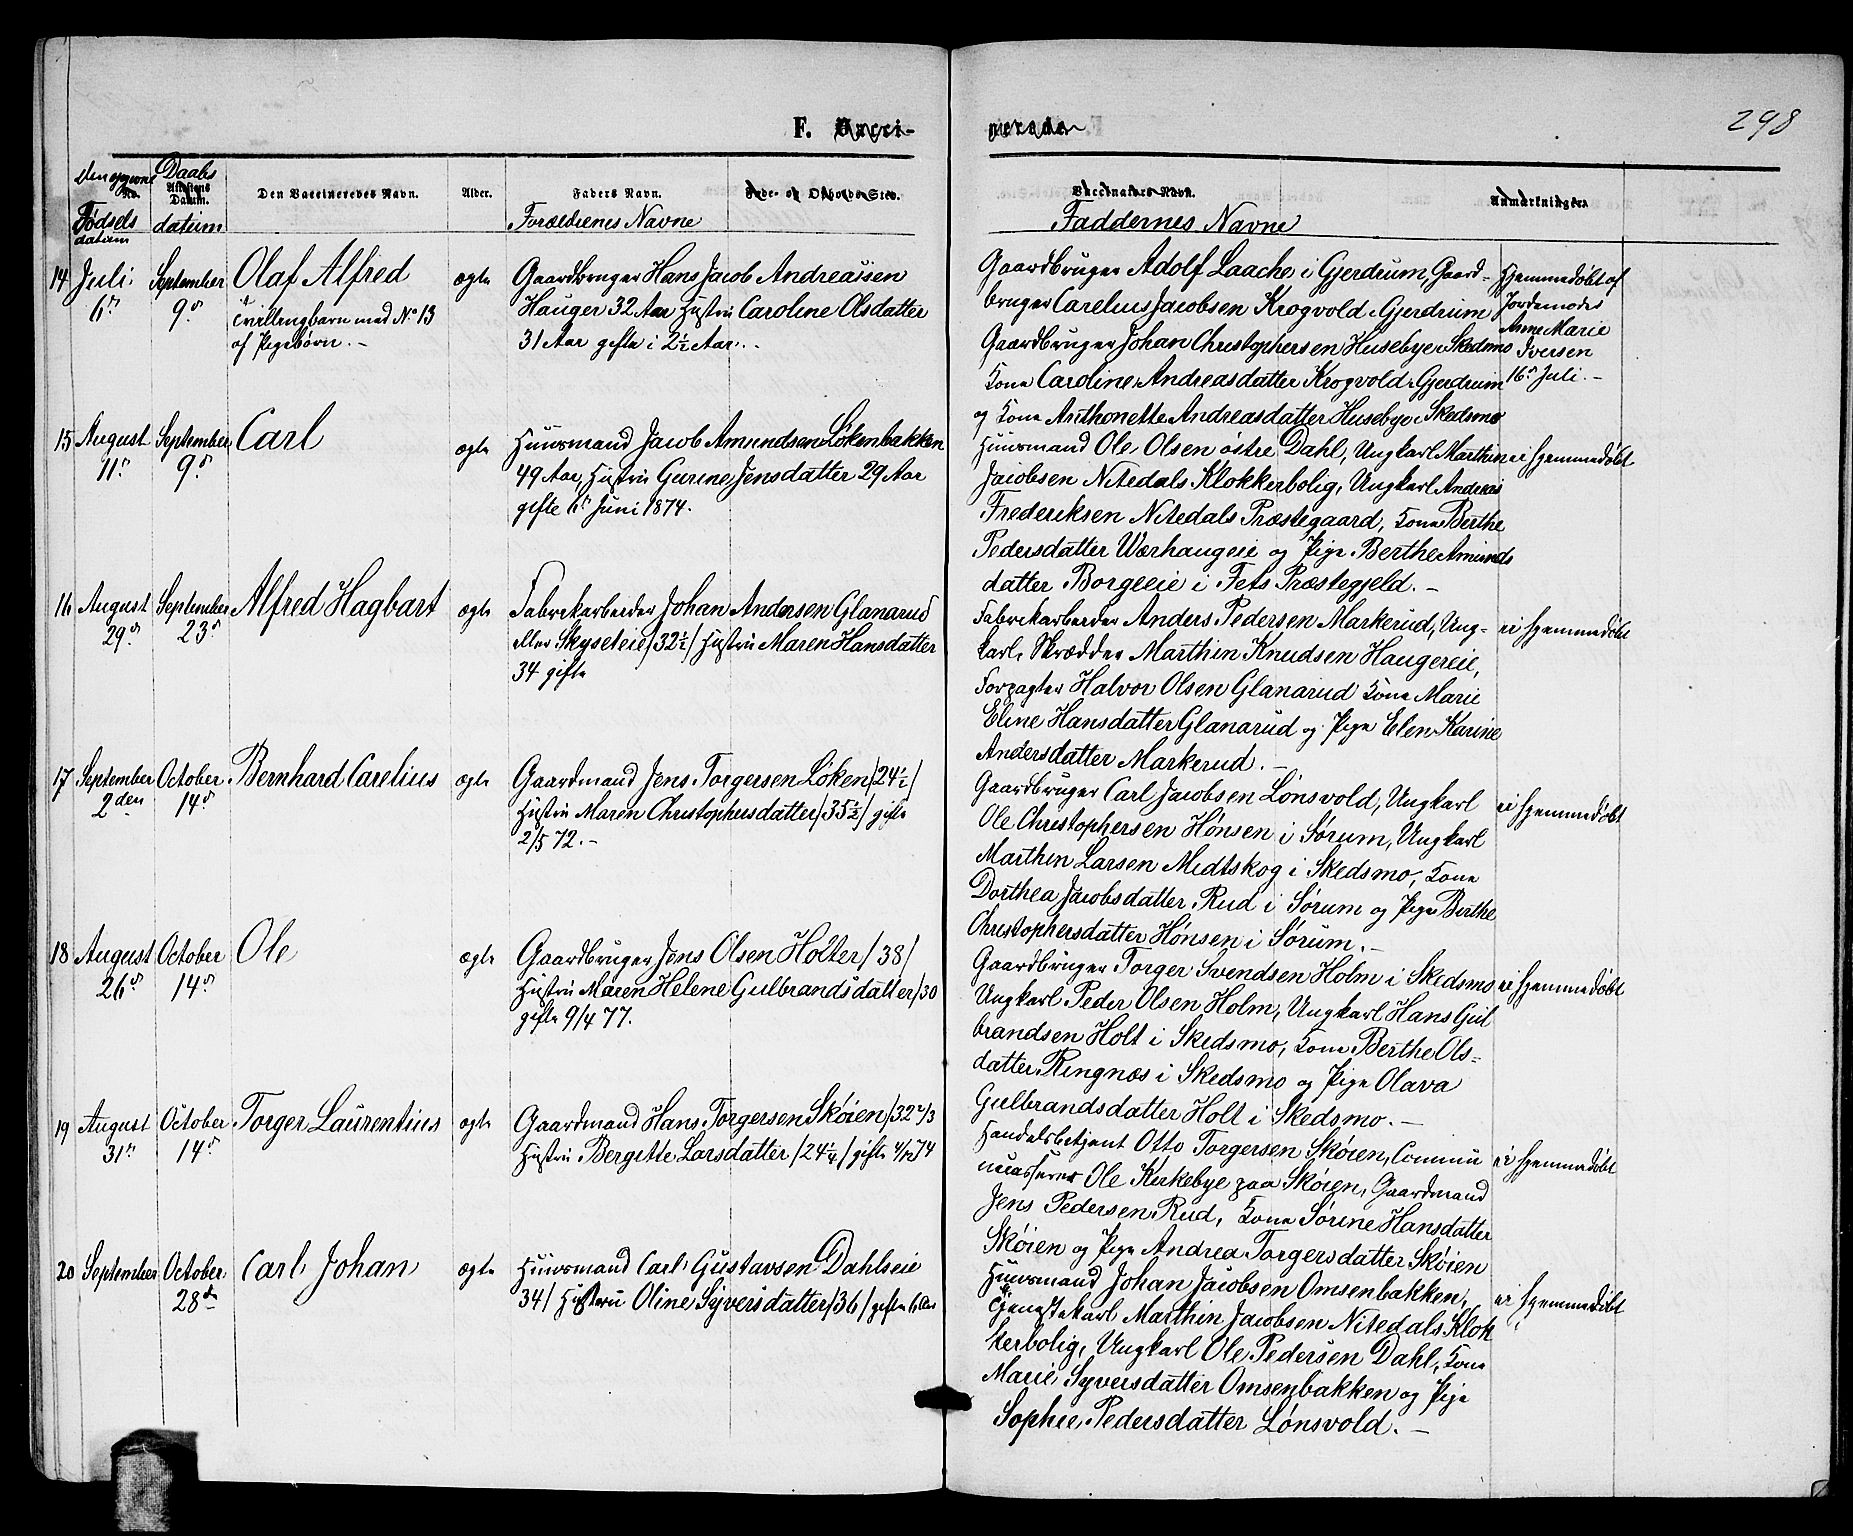 298
F. Vacci- nerede
Den opgivne Daabs
No. Attestens Datum. Den Vaccineredes Navn. Alder. Faders Navn. Føde- og Opholds-Sted. Vaccinators Navn. Anmærkninger.
Fødsels datum datum Forældrenes Navne Faddernes Navne
14 Juli 6te September 9de Olaf Alfred
Tvillingbarn med No 13
af Pigebørn. -
ægte
Gaardbruger Hans Jacob Andreassen
Hauger 32 Aar Hustru Caroline Olsdatter
31 Aar gifte i 2½ Aar. -
Gaardbruger Adolf Laache i Gjerdrum, Gaard-
bruger Carelius Jacobsen Krogvold i Gjerdrum
Gaardbruger Johan Christophersen Husebye i Skedsmo
Kone Caroline Andreasdatter Krogvold i Gjerdrum
og Kone Anthonette Andreasdatter Husebye i Skedsmo
Hjemmedøbt af
Jordemoder
Anne Marie
Iversen
16de Juli. -
15 August 11te September 9de Carl
ægte
Huusmand Jacob Amundsen Løkenbakken
49 Aar, Hustru Gurine Jensdatter 29 Aar
gifte 6te Juni 1874.
Huusmand Ole Olsen østre Dahl, Ungkarl Marthin
Jacobsen Nitedals Klokkerbolig, Ungkarl Andreas
Frederiksen Nitedals Præstegaard, Kone Berthe
Pedersdatter Wærhaugeie og Pige Berthe Amunds
datter Borgeeie i Fets Præstegjeld. -
ei hjemmedøbt
16 August 29de September 23de Alfred Hagbart
ægte
Fabrikarbeider Johan Andersen Glanarud
eller Skyseteie /32½/ Hustru Maren Hansdatter
34 gifte
Fabrikarbeider Anders Pedersen Markerud, Ung-
karl, Skrædder Marthin Knudsen Haugereie,
Forpagter Halvor Olsen Glanarud Kone Marie
Eline Hansdatter Glanarud og Pige Elen Karine
Andersdatter Markerud. -
ei hjemmedøbt
17 September 2den October 14de Bernhard Carelius
ægte
Gaardmand Jens Torgersen Løken /24½/
Hustru Maren Christophersdatter /35½/ gifte
2/5 72. -
Gaardbruger Carl Jacobsen Lønsvold, Ungkarl
Ole Christophersen Hønsen i Sørum, Ungkarl
Marthin Larsen Midtskog i Skedsmo, Kone
Dorthea Jacobsdatter Rud i Sørum og Pige Berthe
Christophersdatter Hønsen i Sørum. -
ei hjemmedøbt
18 August 26de October 14de Ole
ægte
Gaardbruger Jens Olsen Holter /38/
Hustru Maren Helene Gulbrandsdatter /30
gifte 9/4 77.
Gaardbruger Torger Svendsen Holm i Skedsmo
Ungkarl Peder Olsen Holm, Ungkarl Hans Gul
brandsen Holt i Skedsmo, Kone Berthe Ols-
datter Ringnæs i Skedsmo og Pige Olava
Gulbrandsdatter Holt i Skedsmo. -
ei hjemmedøbt
19 August 31te October 14de Torger Laurentius
ægte
Gaardmand Hans Torgersen Skøien /32 2/3
Hustru Bergitte Larsdatter /24¼/ gifte 4/12 74
Handelsbetjent Otto Torgersen Skøien, Commu
necasserer Ole Kirkebye paa Skøien, Gaardmand
Jens Pedersen Rud, Kone Sørine Hansdatter
Skøien og Pige Andrea Torgersdatter Skøien
ei hjemmedøbt
20 September October 28de Carl Johan
ægte
Huusmand Carl Gustavsen Dahlseie
34/ Hustru Oline Syversdatter /36/ gifte 6 Aar
Huusmand Johan Jacobsen Omsenbakken,
Tjenestekarl Marthin Jacobsen Nitedals Klok
kerbolig, Ungkarl Ole Pedersen Dahl, Kone
Marie Syversdatter Omsenbakken og Pige
Sophie Pedersdatter Lønsvold. -
ei hjemmedøbt